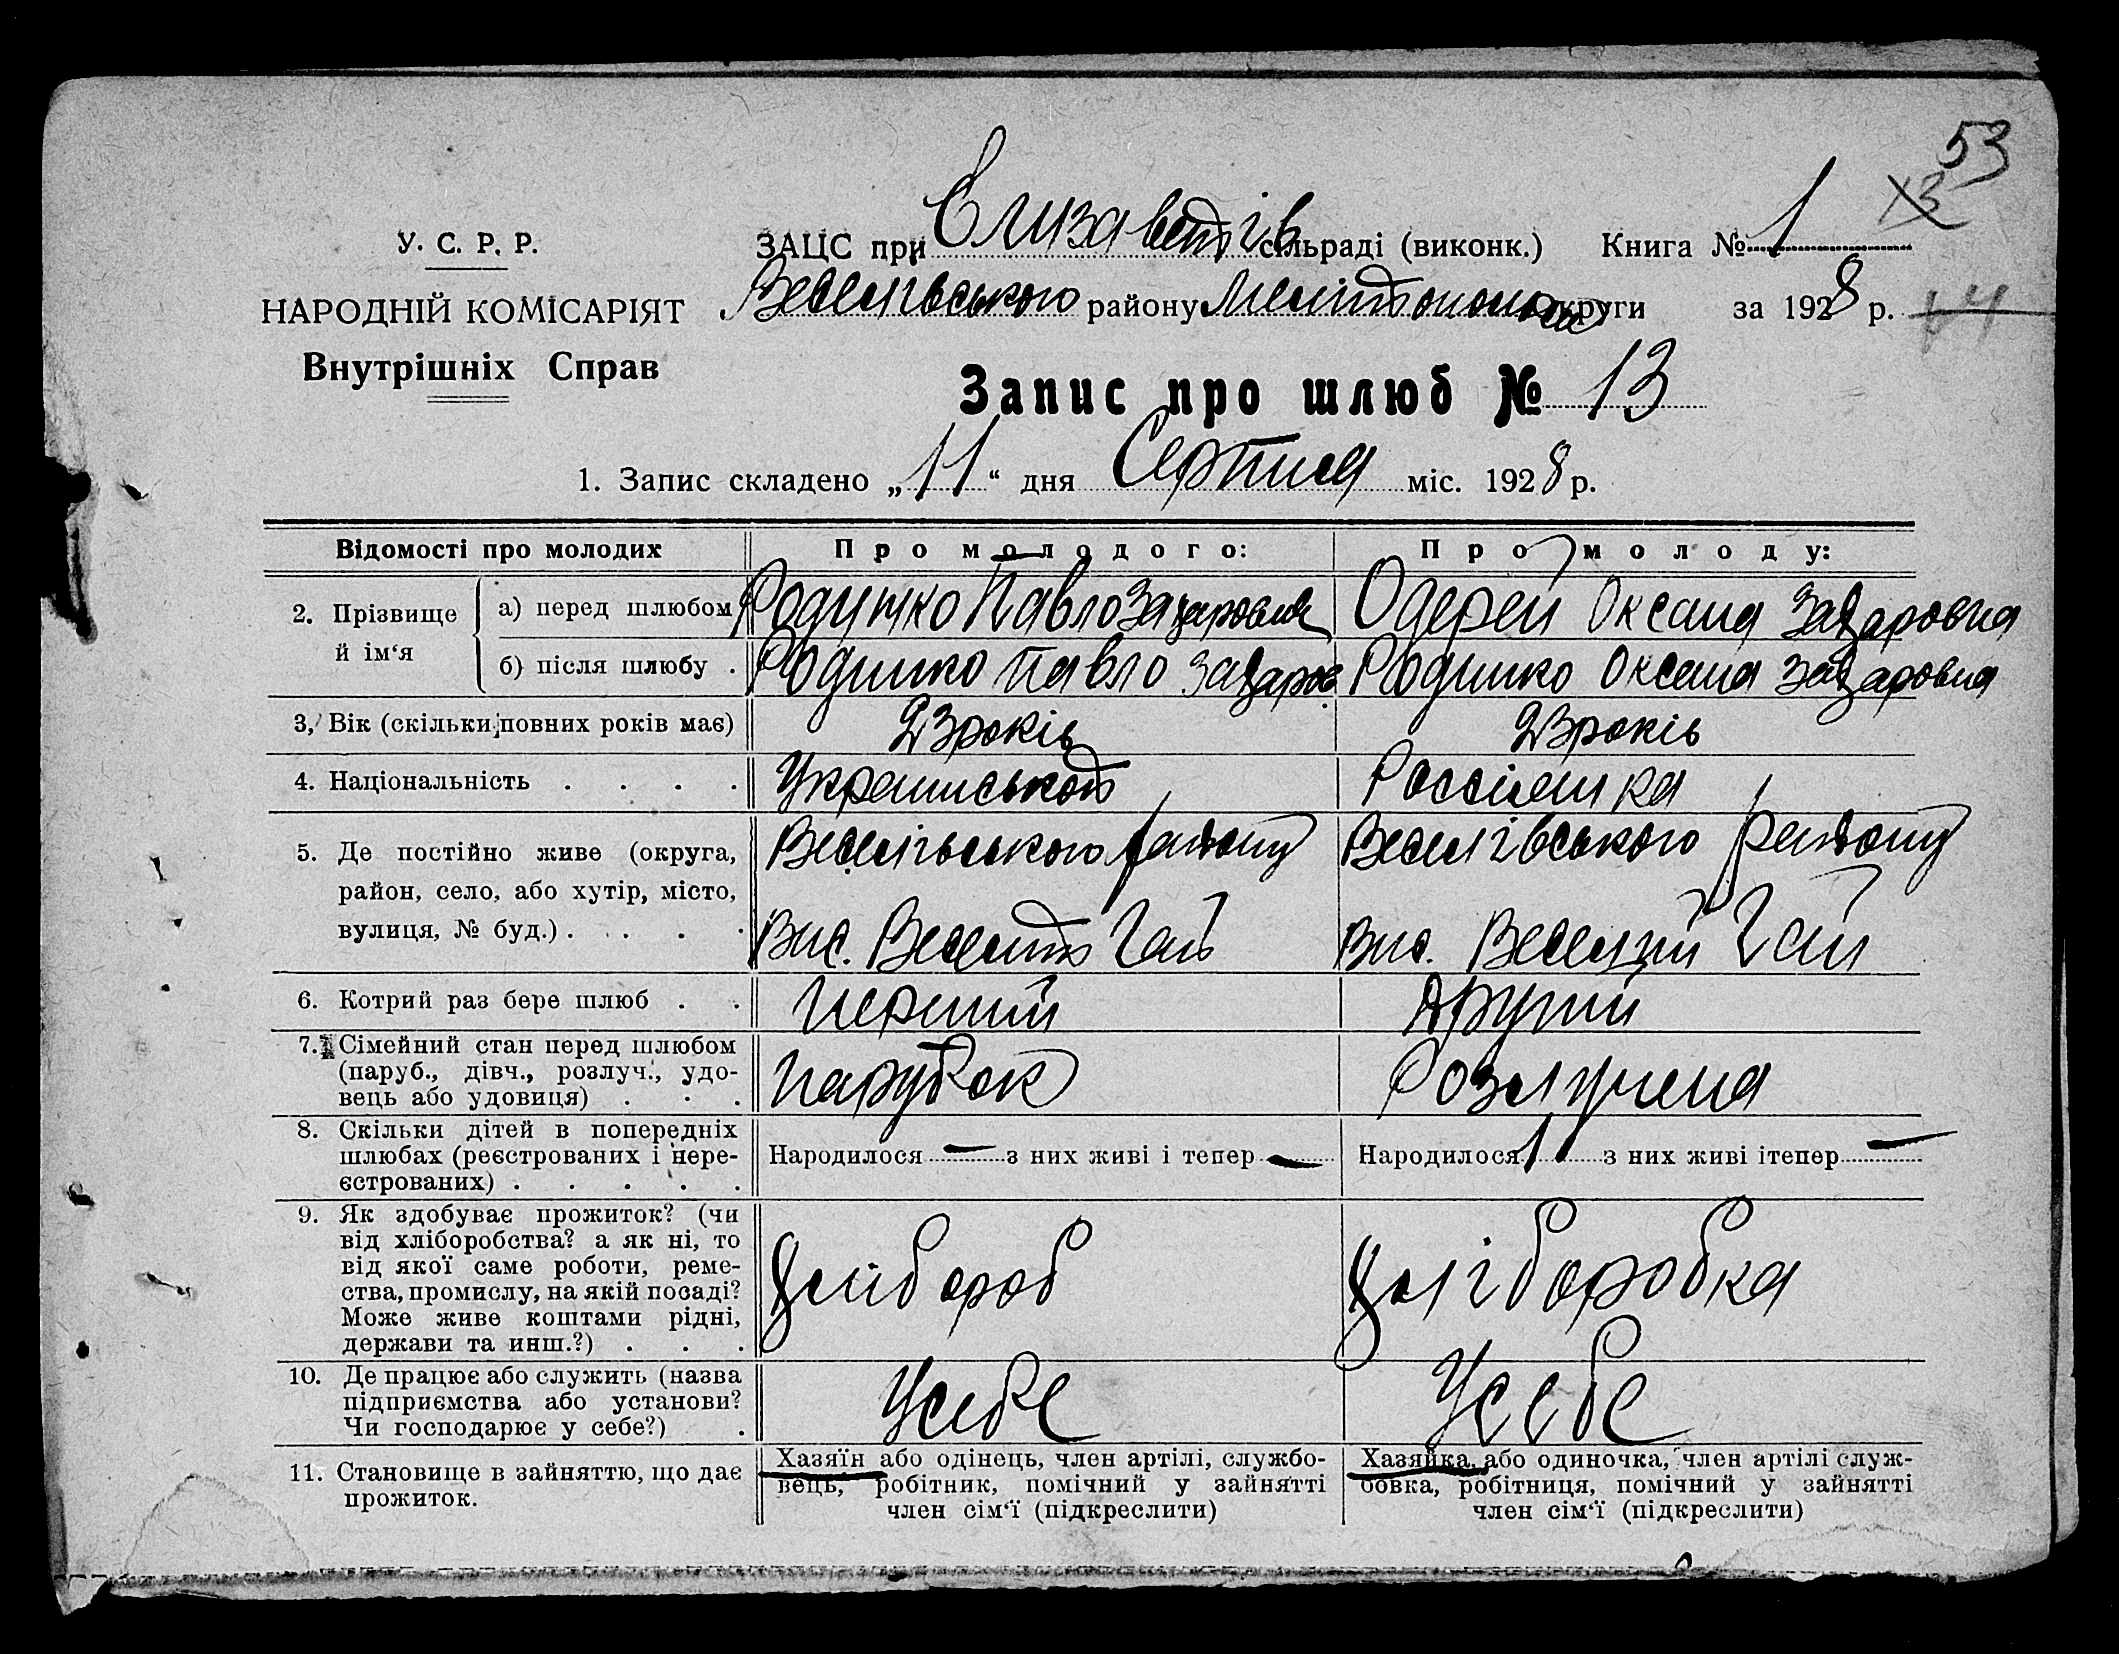 53
13
У. С. Р. Р.
ЗАЦС при Єлизаветів сільраді (виконк.) Книга № 1
НАРОДНІЙ КОМІСАРІЯТ
Веселівського району Мелітопольськ округи за 1928 р.
Внутрішніх Справ
Запис про шлюб № 13
1. Запис складено „11“ дня Серпня міс. 1928 р.
Відомості про молодих
Про молодого:
Про молоду:
2. Прізвище й ім‘я
а) перед шлюбом
Павло Захарович
Одерей Оксана Захаровна
б) після шлюбу .
Павло Захаров
Оксана Захаровна
3. Вік (скільки повних років має)
23 років
23 років
4. Національність . . . .
Українськой
Россіянка
5. Де постійно живе (округа,
район, село, або хутір, місто,
вулиця, № буд.) . . . .
Веселівського району
Вис. Веселий Гай
Веселівського району
Вис. Веселий Гай
6. Котрий раз бере шлюб . .
Перший
Другий
7. Сімейний стан перед шлюбом
(паруб., дівч., розлуч., удо-
вець або удовиця) . . .
Парубок
Розлучена
8. Скільки дітей в попередніх
шлюбах (реєстрованих і нере-
єстрованих) . . . . .
Народилося — з них живі і тепер —
Народилося 1 з них живі ітепер —
9. Як здобуває прожиток? (чи
від хліборобства? а як ні, то
від якої саме роботи, реме-
ства, промислу, на якій посаді?
Може живе коштами рідні,
держави та инш.?) . . .
Хлібороб
Хліборобка
10. Де працює або служить (назва
підприємства або установи?
Чи господарює у себе?) .
У себе
У себе
11. Становище в зайняттю, що дає
прожиток.
Хазяїн або одінець, член артілі, службо-
вець, робітник, помічний у зайнятті
член сім‘ї (підкреслити)
Хазяйка, або одиночка, член артілі служ-
бовка, робітниця, помічний у зайнятті
член сім‘ї (підкреслити)